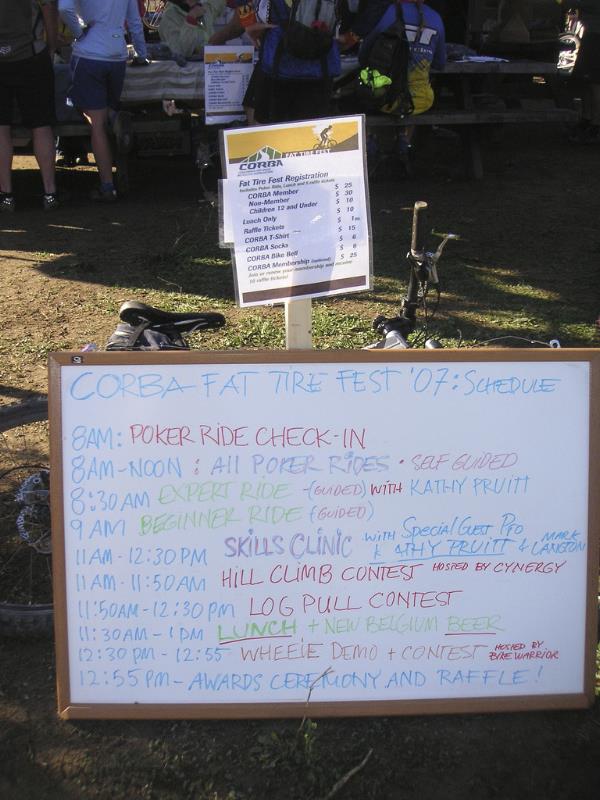 CORBA
CORBA
FAT TIRE FEST
Fat Tire Fest Registration
Includes Poker Ride, Lunch and 5 raffle tickets
CORBA Member $ 25
Non-Member $ 30
Children 12 and Under $ 10
Lunch Only $ 10
Raffle Tickets $ 1
CORBA T-Shirt $ 15
CORBA Socks $ 6
CORBA Bike Bell $ 6
CORBA Membership (optional) $ 25
Join or renew your membership and receive
10 raffle tickets!
CORBA FAT TIRE FEST '07: SCHEDULE
8AM: POKER RIDE CHECK-IN
8AM-NOON : All POKER RIDES · SELF GUIDED
8:30AM EXPERT RIDE -(GUIDED) WITH KATHY PRUITT
9AM BEGINNER RIDE (GUIDED)
11AM-12:30PM SKILLS CLINIC WITH Special Guest Pro KATHY PRUITT & MARK LANGTON
11AM-11:50AM HILL CLIMB CONTEST HOSTED BY CYNERGY
11:50AM-12:30PM LOG PULL CONTEST
11:30AM-1PM LUNCH + NEW BELGIUM BEER
12:30PM-12:55 WHEELIE DEMO + CONTEST HOSTED BY BIKE WARRIOR
12:55PM-AWARDS CEREMONY AND RAFFLE!